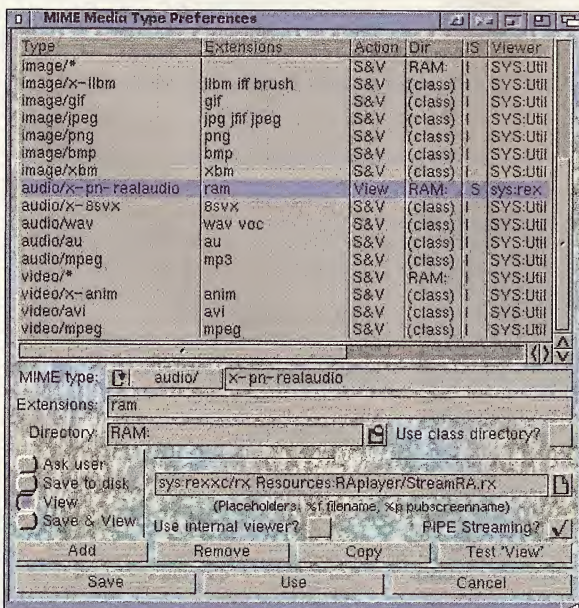 MIME Media Type Preferences
Type Extensions Action Dir IS Viewer
image/* S&V RAM: I SYS:Util
image/x-ilbm ilbm iff brush S&V (class) I SYS:Util
image/gif gif S&V (class) I SYS:Util
image/jpeg jpg jfif jpeg S&V (class) I SYS:Util
image/png png S&V (class) I SYS:Util
image/bmp bmp S&V (class) I SYS:Util
image/xbm xbm S&V (class) I SYS:Util
audio/x-pn-realaudio ram View RAM: S sys:rex
audio/x-8svx 8svx S&V (class) I SYS:Util
audio/wav wav voc S&V (class) I SYS:Util
audio/au au S&V (class) I SYS:Util
audio/mpeg mp3 S&V (class) I SYS:Util
video/* S&V RAM: I SYS:Util
video/x-anim anim S&V (class) I SYS:Util
video/avi avi S&V (class) I SYS:Util
video/mpeg mpeg S&V (class) I SYS:Util
MIME type: audio/ x-pn-realaudio
Extensions: ram
Directory: RAM: Use class directory?
Ask user
Save to disk
View
Save & View
sys:rexxc/rx Resources:RAplayer/StreamRA.rx
(Placeholders: %f filename, %p pubscreenname)
Use internal viewer? PIPE Streaming?
Add Remove Copy Test "View"
Save Use Cancel